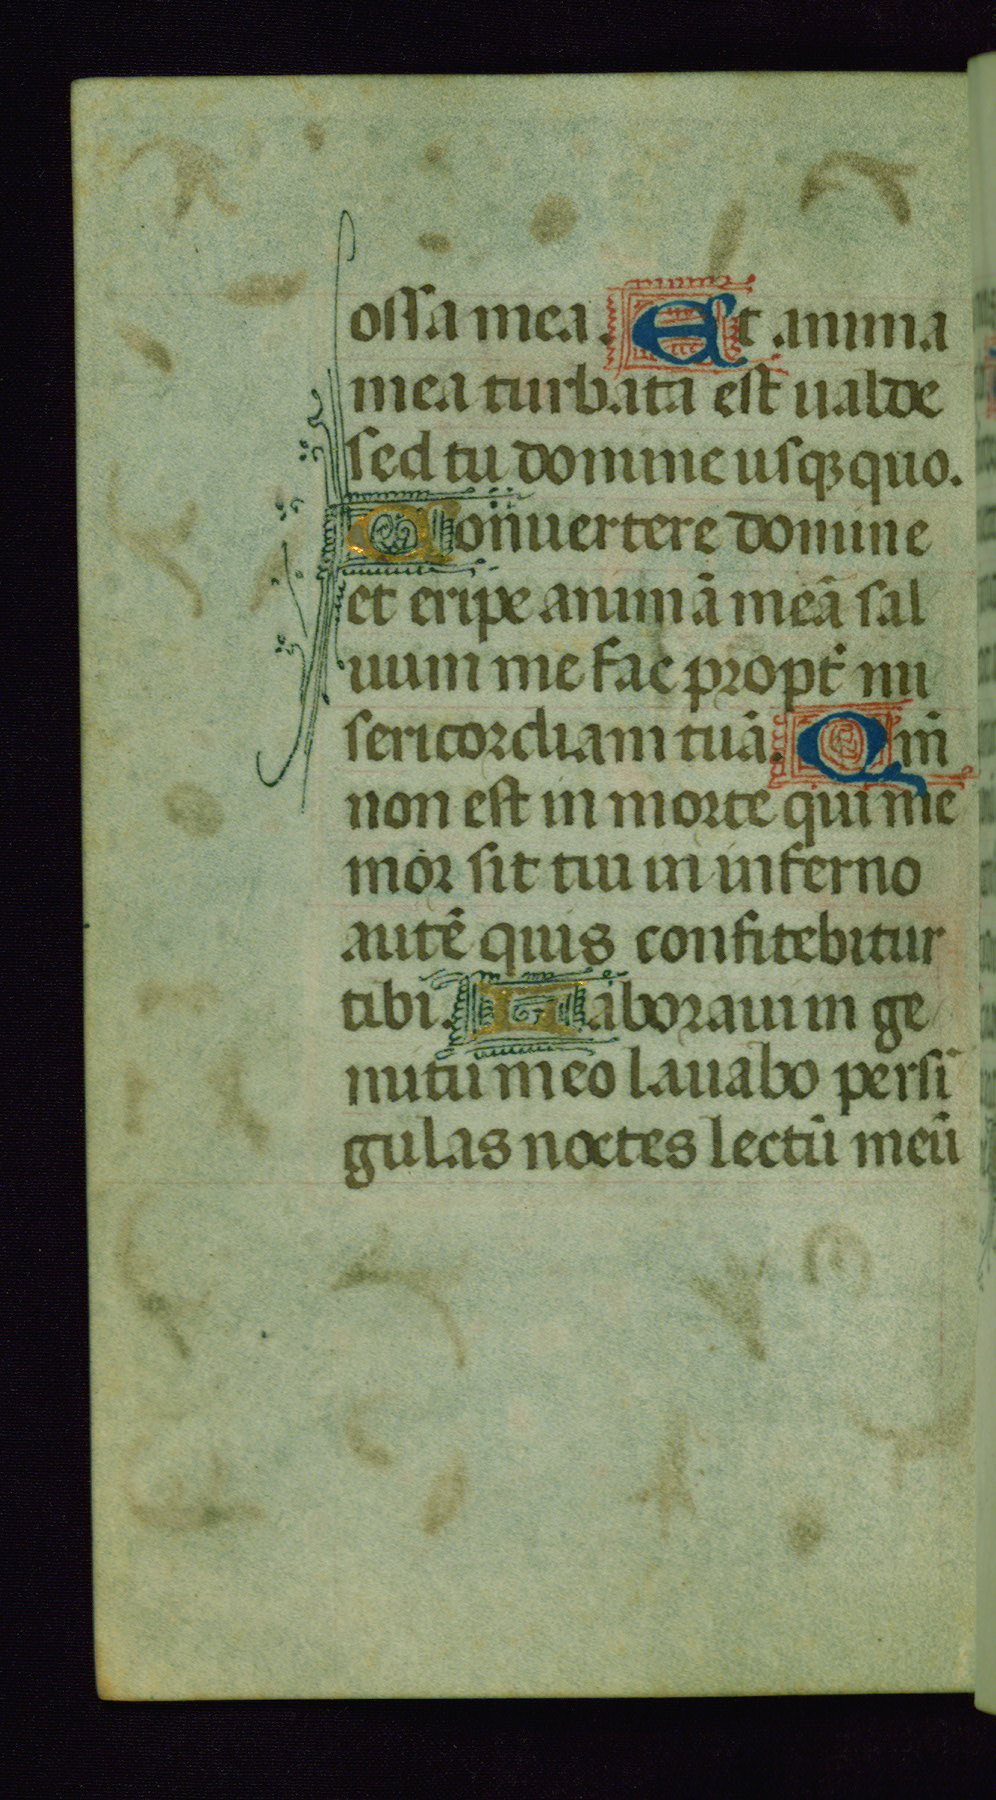 ossa mea. Et anima
mea turbata est ualde
sed tu domine usqꝫ quo.
Conuertere domine
et eripe animā meā sal
uum me fac propt̄ mi
sericordiam tuā. Qm̄
non est in morte qui me
mor sit tui in inferno
autē quis confitebitur
tibi. Laboraui in ge
mitu meo lauabo per si
gulas noctes lectū meū